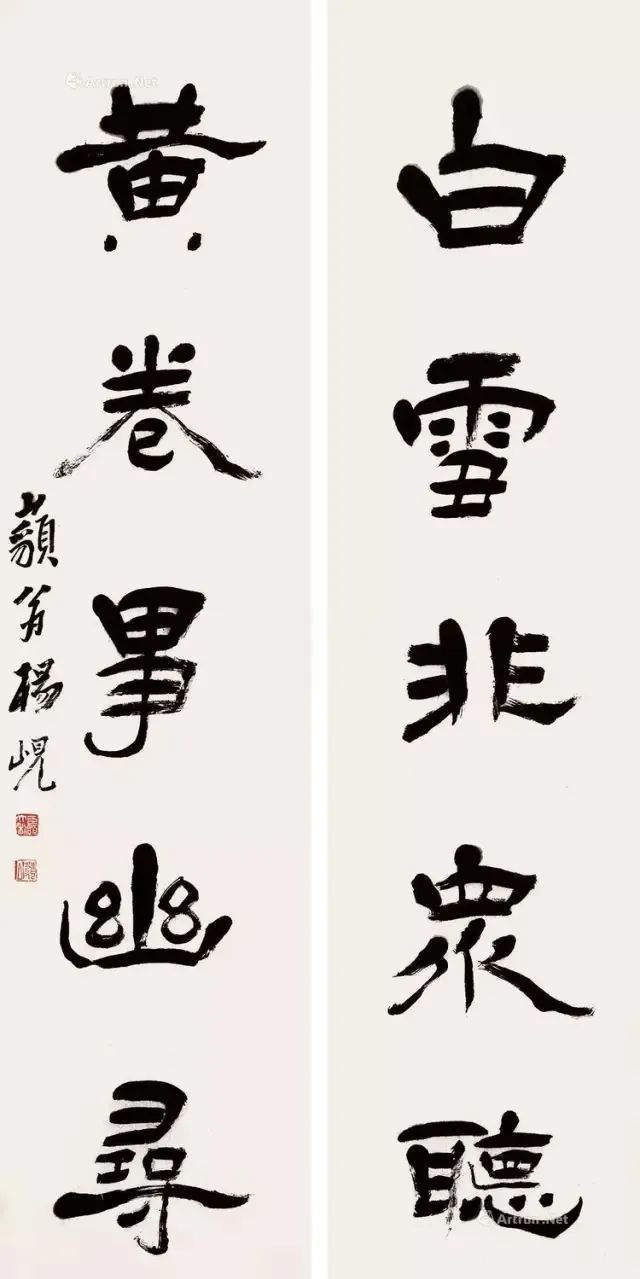 白雪非眾聽
黃卷事幽尋
藐翁楊峴
Artron.Net
Artron.Net